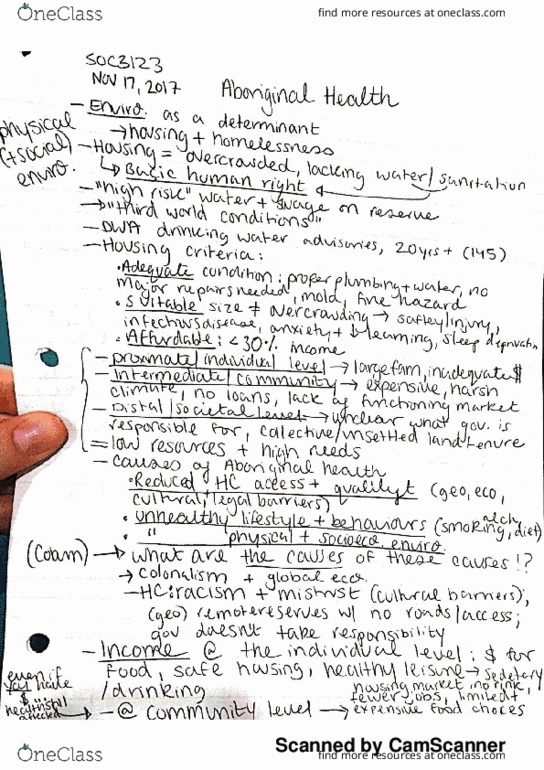 OneClass
find more resources at oneclass.com
SOC3123
Nov 17, 2017
Aboriginal Health
physical
(+social)
enviro.
- Enviro. as a determinant
→ housing + homelessness
- Housing = overcrowded, lacking water/sanitation
↳ Basic human right
- "high risk" water + swage on reserve
→ "third world conditions"
- DWA drinking water advisories, 20yrs+ (145)
- Housing criteria:
• Adequate condition: proper plumbing + water, no
major repairs needed, mold, fire hazard
• Suitable size ≠ overcrowding → safley/injury,
infectious disease, anxiety + learning, sleep deprivation
• Affordable: <30% income
- proximate/individual level → large fam, inadequate $
- Intermediate/community → expensive, harsh
climate, no loans, lack of functioning market
- Distal/societal level → unclear what gov. is
responsible for, collective/unsettled land tenure
= low resources + high needs
- causes of Aboriginal health
• Reduced HC access + quality (geo, eco,
cultural, legal barriers)
• unhealthy lifestyle + behaviours (smoking, alch, diet)
• " physical + socioeco enviro.
(Coam) → what are the causes of these causes!?
→ colonalism + global eco.
- HC: racism + mistrust (cultural barriers),
(geo) remote reserves w/ no roads/access;
gov doesn't take responsibility
- Income @ the individual level: $ for
food, safe housing, healthy leisure → sedetary
/drinking
even if
you have
$ ...
health still
affected
- @ community level → housing market no rink,
fewer jobs, limited +
expensive food choices
Scanned by CamScanner
OneClass
find more resources at oneclass.com